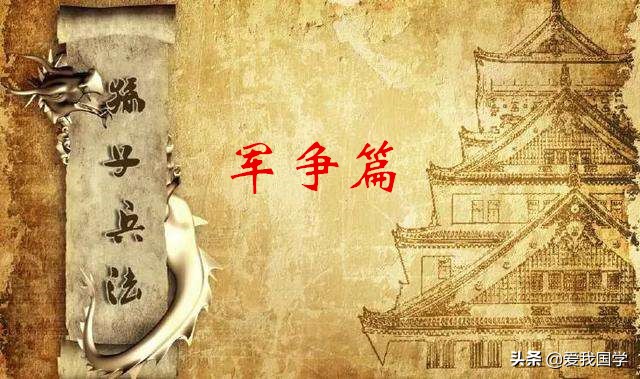 孙子兵法
军争篇
头条 @爱我国学